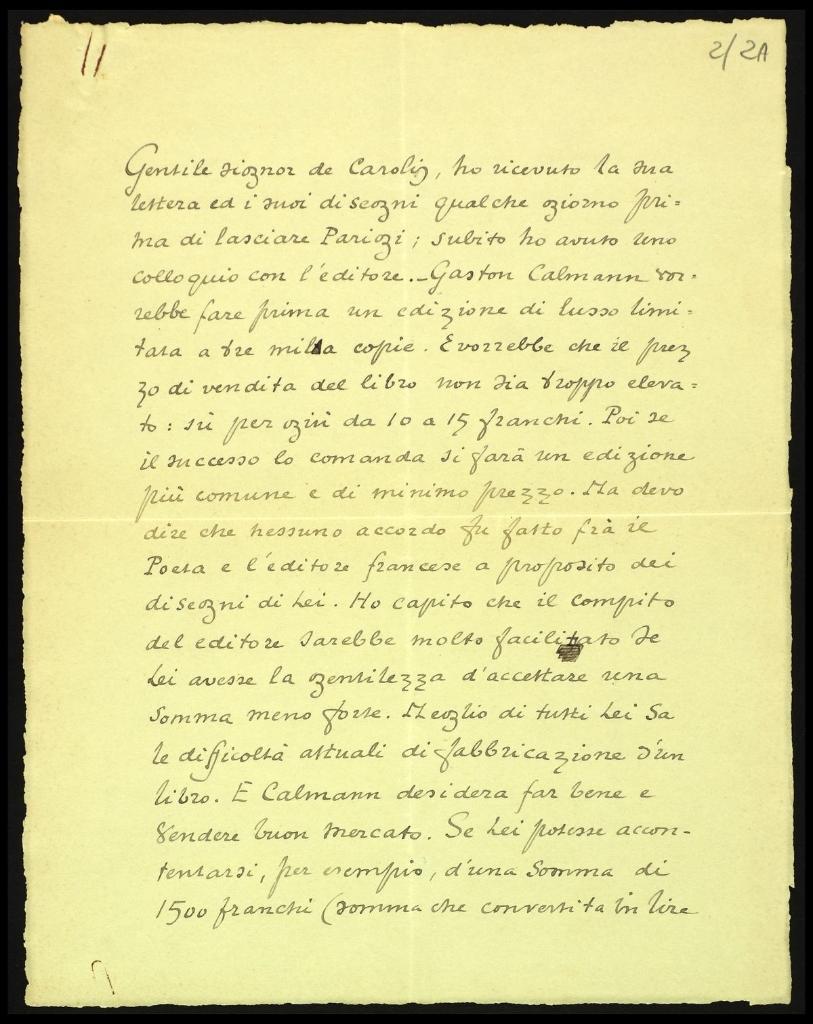 11
2/2A
Gentile signor de Carolis, ho ricevuto la sua
lettera ed i suoi disegni qualche giorno pri=
ma di lasciare Parigi; subito ho avuto uno
colloquio con l'éditore._Gaston Calmann vor-
rebbe fare prima un edizione di lusso limi-
tata a tre mila copie. E vorrebbe che il prez
zo di vendita del libro non sia troppo eleva=
to: sù per giù da 10 a 15 franchi. Poi se
il successo lo comanda si farà un edizione
più comune e di minimo prezzo. Ma devo
dire che nessuno accordo fu fatto frà il
Poeta e l'éditore francese a proposito dei
disegni di Lei. Ho capito che il compito
del editore sarebbe molto facilitato se
Lei avesse la gentilezza d'accettare una
somma meno forte. Meglio di tutti Lei sa
le difficoltà attuali di fabbricazione d'un
libro. E Calmann desidera far bene e
vendere buon mercato. Se Lei potesse accon-
tentarsi, per esempio, d'una somma di
1500 franchi (somma che convertita in lire